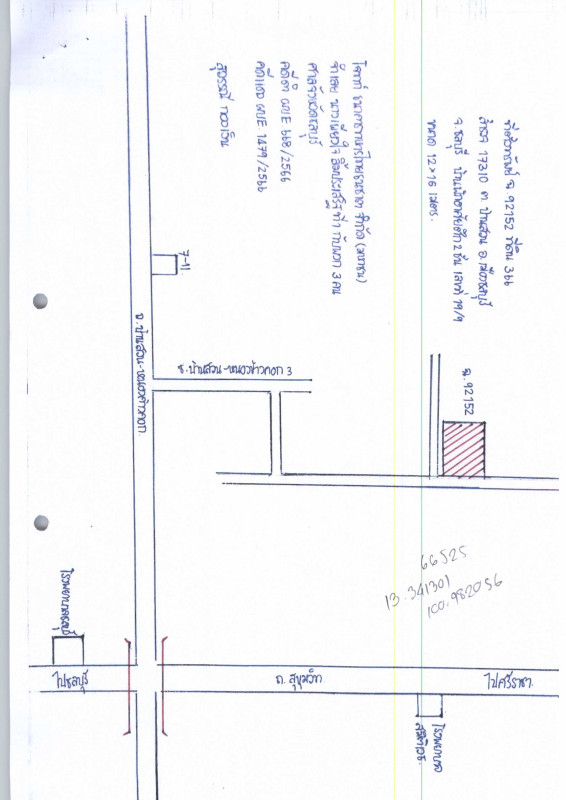 ที่ตั้งทรัพย์ ฉ. 92152 ที่ดิน 366
สำรวจ 17310 ต. บ้านสวน อ. เมืองชลบุรี
จ. ชลบุรี บ้านพักอาศัยตึก 2 ชั้น เลขที่ 19/9
ขนาด 12×16 เมตร.
โจทก์ ธนาคารทหารไทยธนชาต จำกัด (มหาชน)
จำเลย ที่ 1 กับพวก 3 คน
ศาลจังหวัดชลบุรี
คดีดำ ผบE 668/2566
คดีแดง ผบE 1479/2566
สุวรรณี ทองเงิน
7-11
ถ. บ้านสวน-หนองข้างคอก
ซ. บ้านสวน-หนองข้างคอก 3
ฉ. 92152
66525
13.341301
100.982056
โรงพยาบาลชลบุรี
ไปชลบุรี
ถ. สุขุมวิท
ไปศรีราชา
โรงพยาบาล